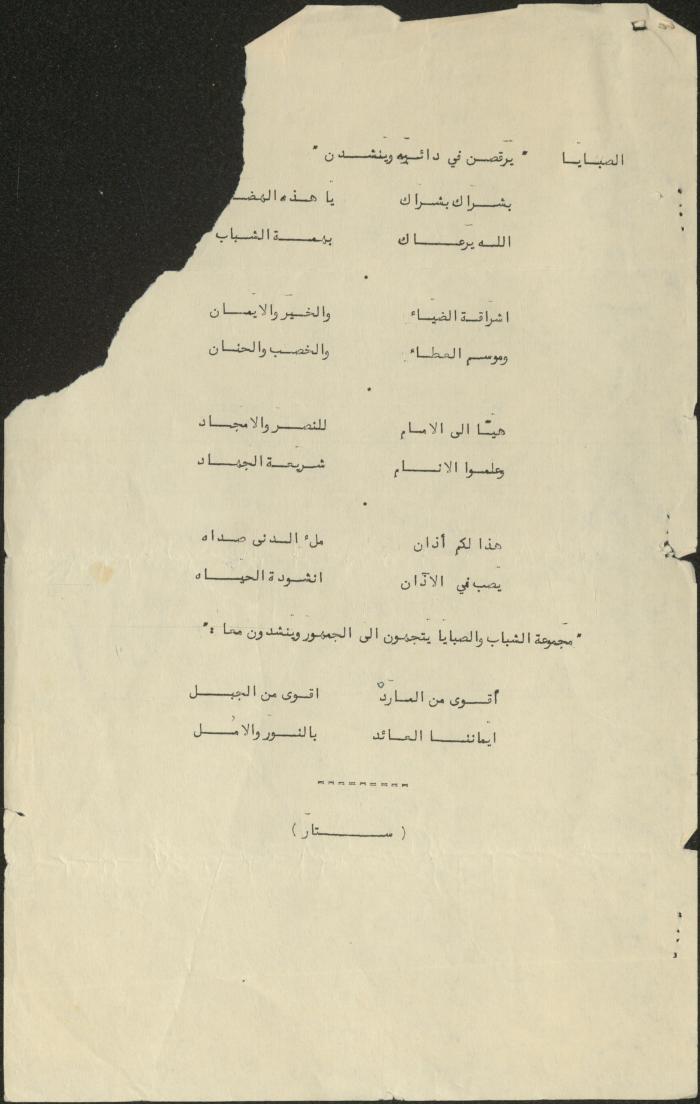 الصبايا " يرقصن في دائيه وينشدن "
بشراك بشراك يا هذه الهضـ
الله يرعاك بهمة الشباب
اشراقة الضياء والخير والايمان
وموسم العطاء والخصب والحنان
هيّا الى الامام للنصر والامجاد
وعلموا الانام شريعة الجهاد
هذا لكم أذان ملء الدنى صداه
يصب في الآذان انشودة الحياه
" مجموعة الشباب والصبايا يتجهون الى الجمهور وينشدون معا : "
أقوى من المارد اقوى من الجبل
ايماننا العائد بالنور والامل
( ستار )